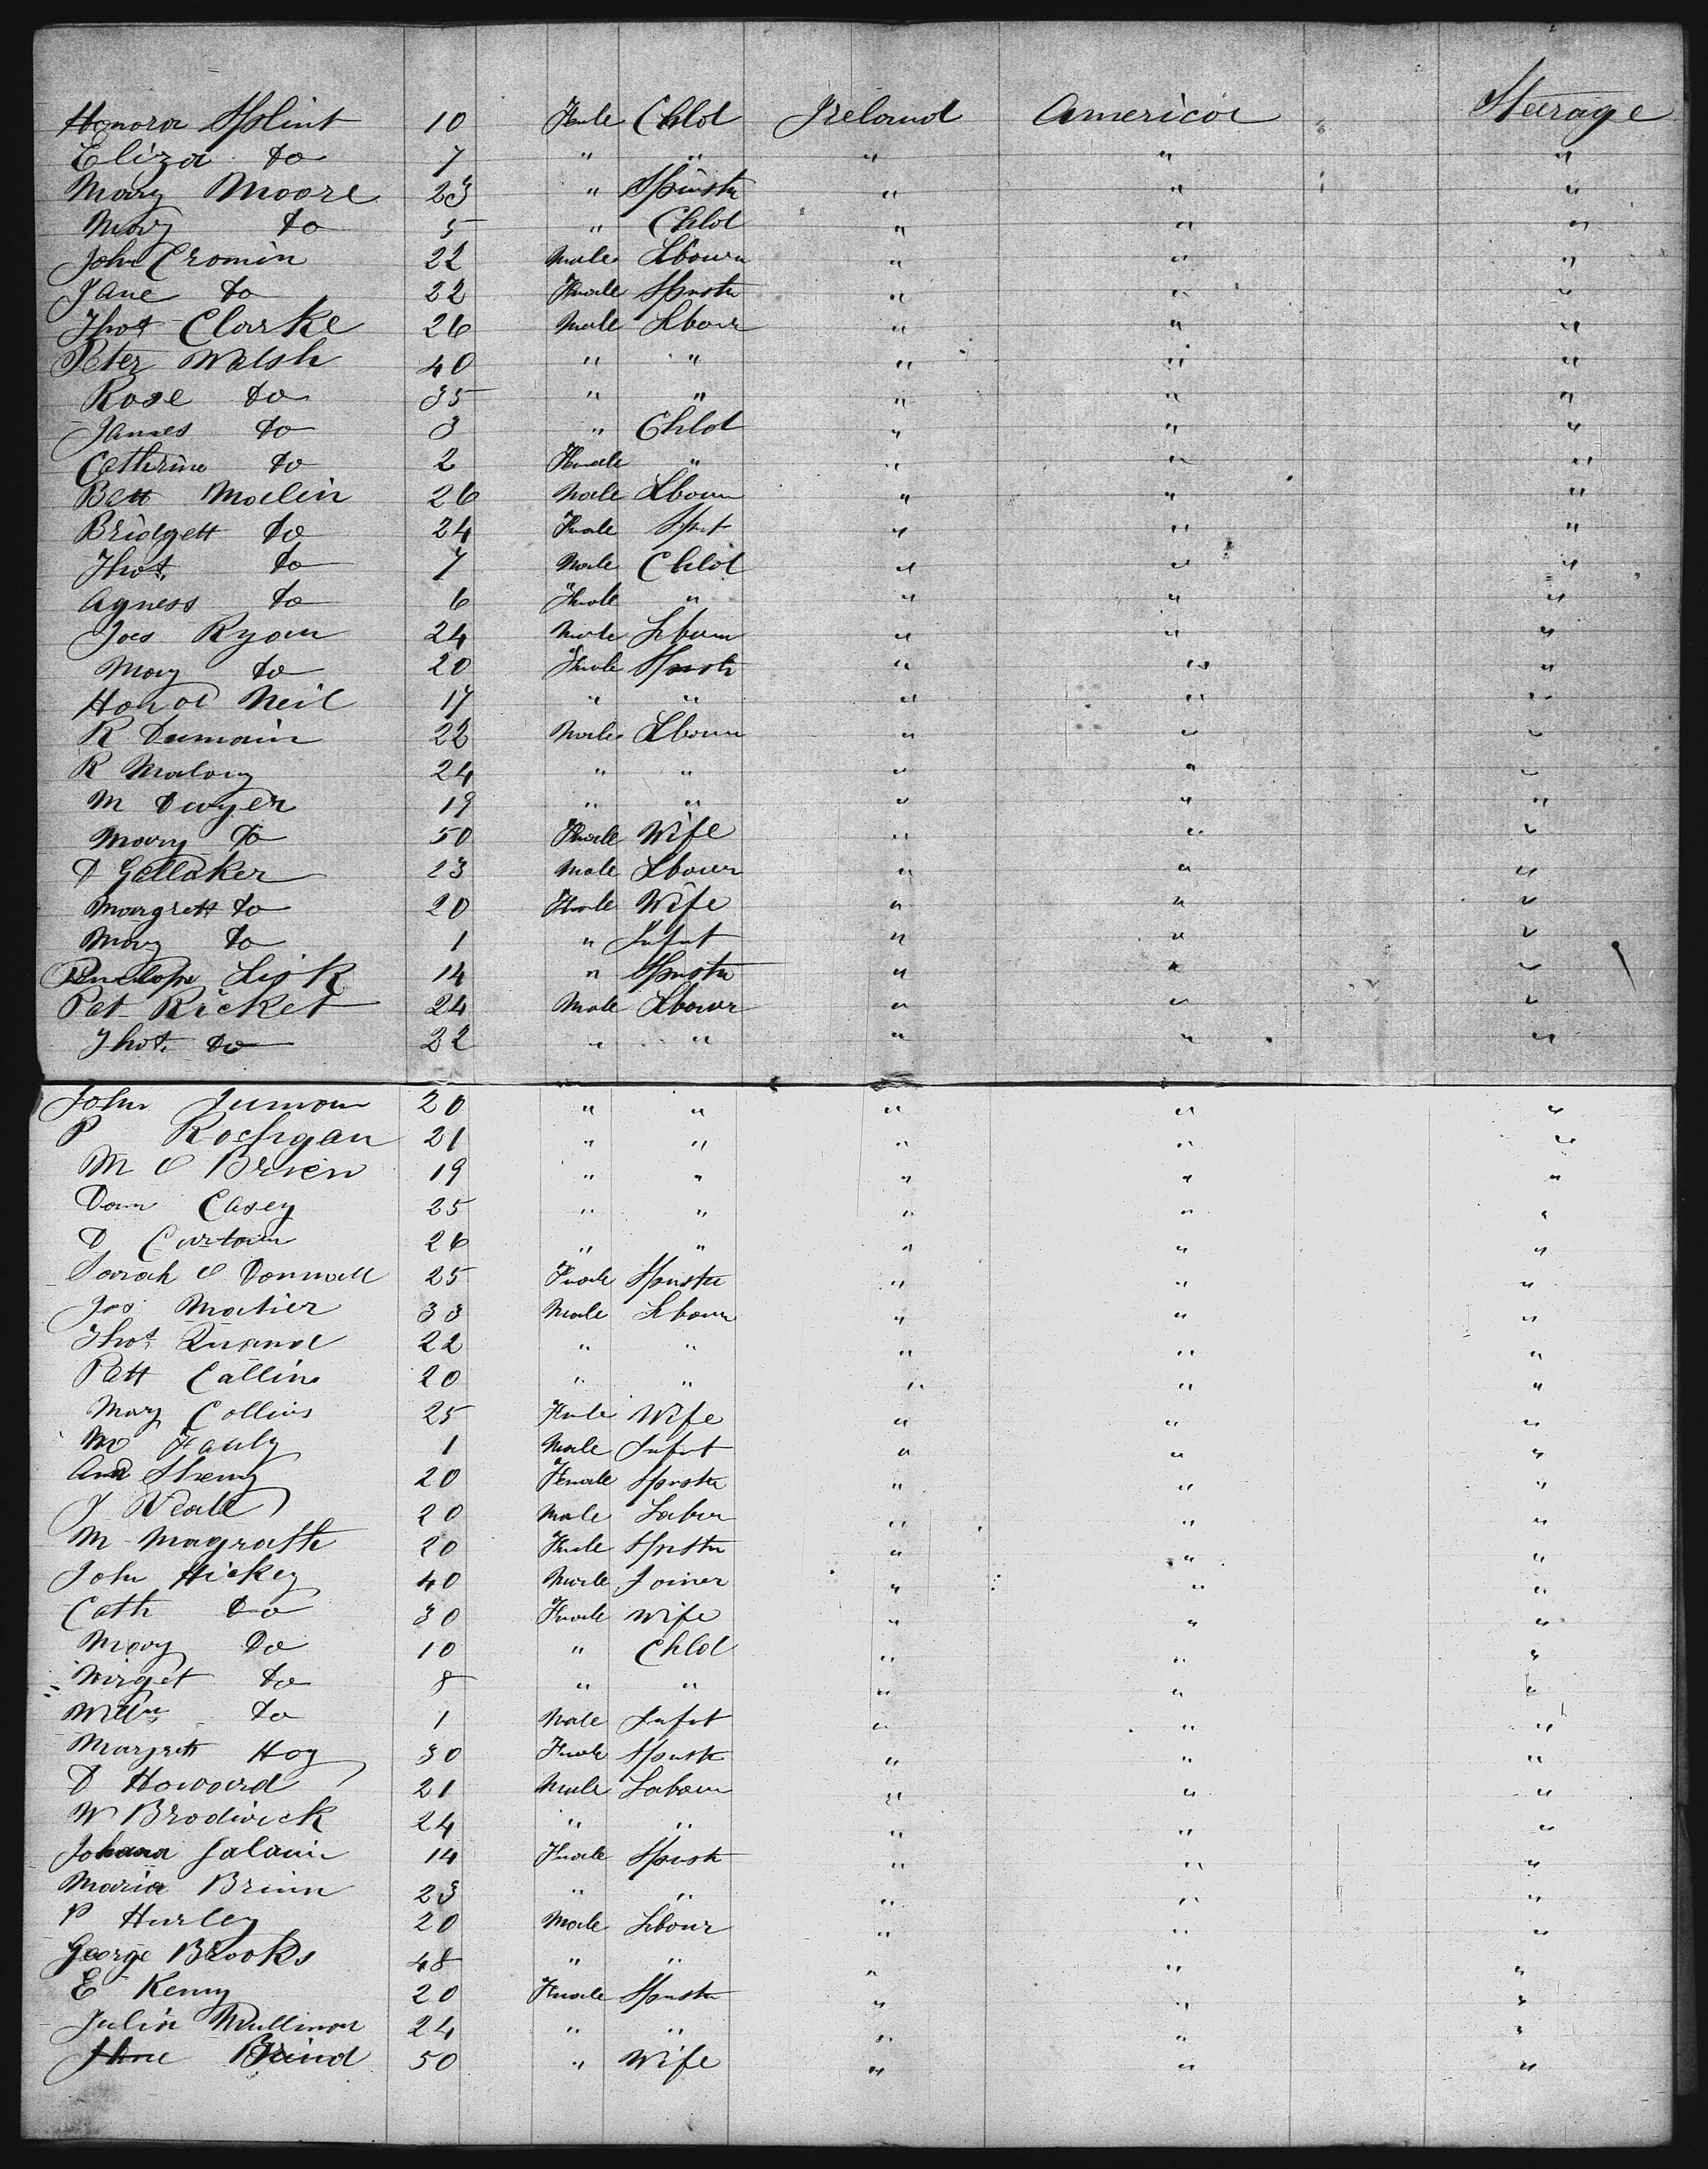 Honora Splint 10 Fmle Chld Ireland America Stearage
Eliza do 7 " " " " "
Mary Moore 23 " Spinstr " " "
Mary do 5 " Chld " " "
John Cromin 22 Male Lbourr " " "
Jane do 22 Fmale Spnstr " " "
Thos Clarke 26 Male Lbour " " "
Peter Walsh 40 " " " " "
Rose do 35 " " " " "
James do 3 " Chld " " "
Catherine do 2 Female " " " "
Batt Malin 26 Male Lbour " " "
Bridgett do 24 Fmale Spnt " " "
Thos. do 7 Male Chld " " "
Agness do 6 Fmale " " " "
Jas Ryan 24 Male Lbour " " "
Mary do 20 Fmale Spnstr " " "
Honor Neil 17 " " " " "
R 22 Male Lbour " " "
R Malony 24 " " " " "
M Dwyer 19 " " " " "
Mary do 50 Fmale Wife " " "
D Gallaker 23 Male Lbour " " "
Margrett do 20 Fmale Wife " " "
Mary do 1 " Infnt " " "
Penelope Lisk 14 " Spnstr " " "
Pat Ricket 24 Male Lbour " " "
Thos. do 22 " " " " "
John 20 " " " " "
P Rochgan 21 " " " " "
M O Brien 19 " " " " "
Dan Casey 25 " " " " "
D Curtain 26 " " " " "
Sarah O Donnall 25 Fmale Spnstr " " "
Jas Matier 33 Male Lbour " " "
Thos 22 " " " " "
Patt Callins 20 " " " " "
Mary Collins 25 Fmle Wife " " "
M 1 Male Infnt " " "
Ann 20 Female Spnstr " " "
J Neall 20 Male Labur " " "
M Magrath 20 Fmle Spnstr " " "
John Hickey 40 Male Joiner " " "
Cath Do 30 Fmale Wife " " "
Mary Do 10 " Chld " " "
Mrget do 8 " " " " "
Willm do 1 Male Infnt " " "
Margrett Hog 30 Fmale Spnstr " " "
D Howard 21 Male Labour " " "
W Brodwick 24 " " " " "
Johana Galavin 14 Fmale Spnstr " " "
Maria Brinn 23 " " " " "
P Hurley 20 Male Lbour " " "
George Brooks 48 " " " " "
E Kenny 20 Fmale Spnstr " " "
Julia Mullinor 24 " " " " "
Jane 50 " Wife " " "